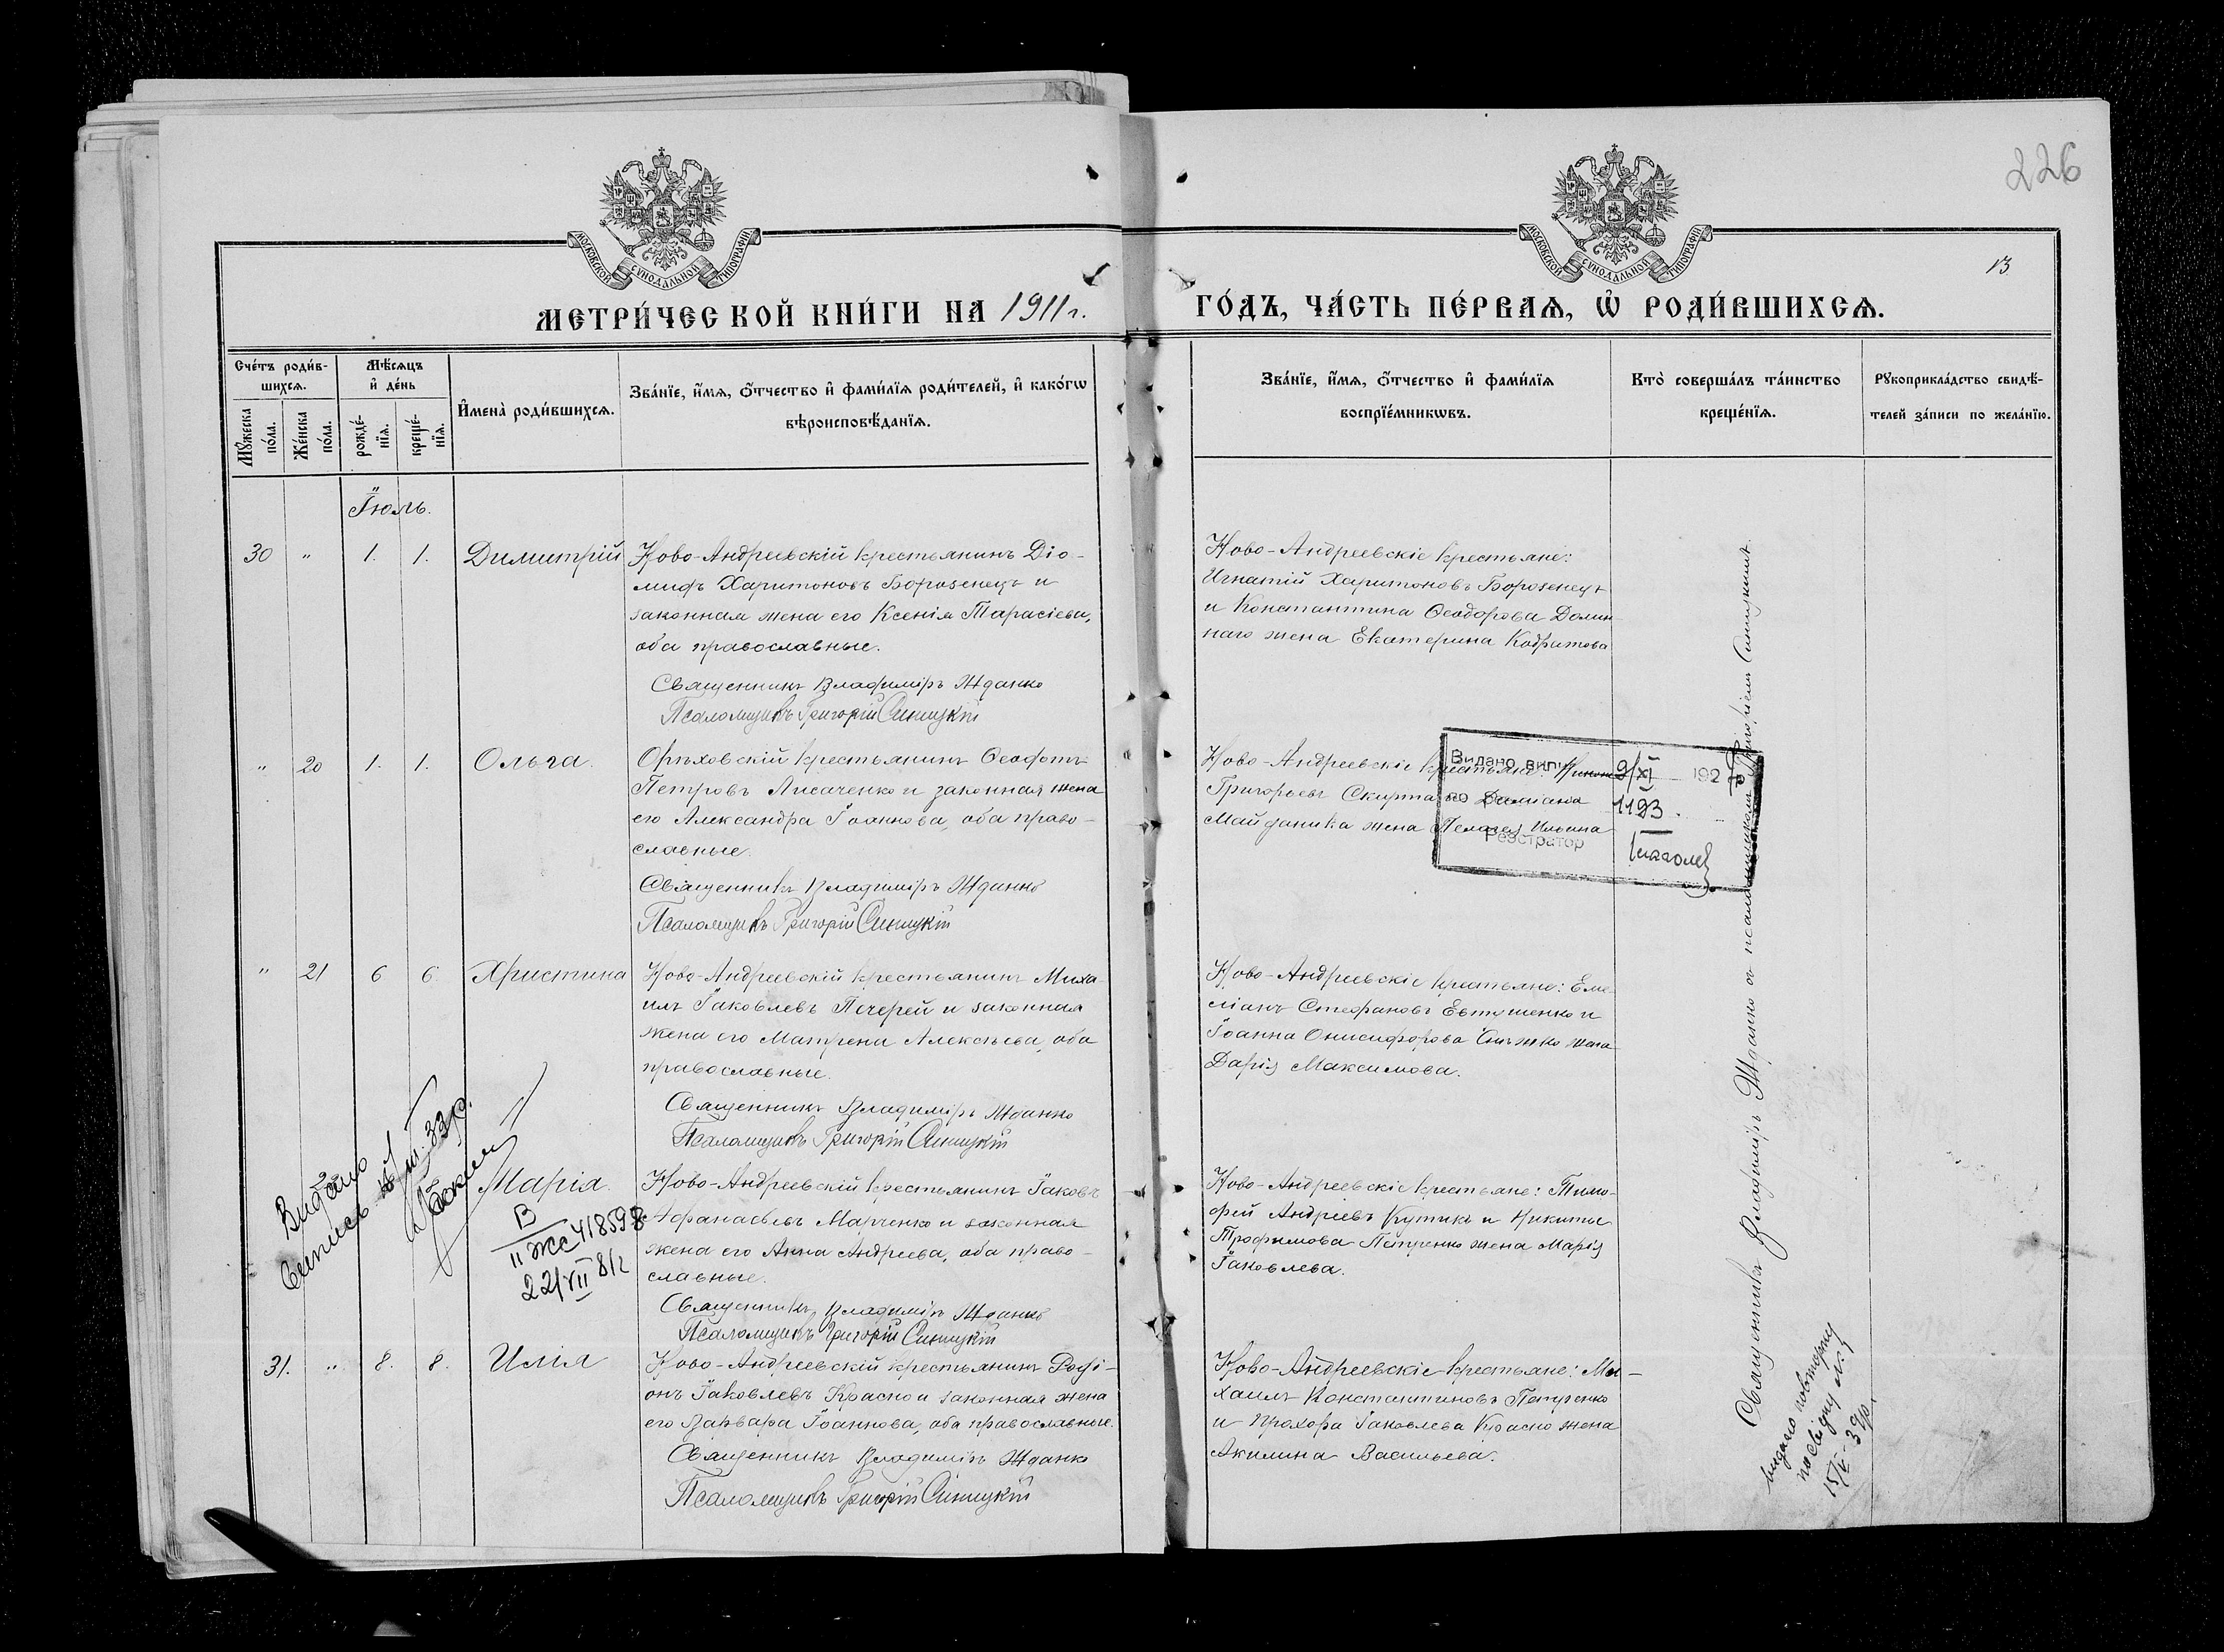 226
13
МОСКОВСКОЙ СѴНОДАЛЬНОЙ ТИПОГРАФІИ
МОСКОВСКОЙ СѴНОДАЛЬНОЙ ТИПОГРАФІИ
МЕТРИ́ЧЕСКОЙ КНИ́ГИ НА 1911 г.
ГО́ДЪ, ЧА́СТЬ ПЕ́РВАѦ, Ѽ РОДИ́ВШИХСѦ.
Сче́тъ роди́в-
шихсѧ.
Мѣ́сѧцъ
и҆ де́нь
Мꙋ́жеска
по́ла.
Же́нска
по́ла.
рожде́-
нїѧ.
креще́-
нїѧ.
И҆мена̀ роди́вшихсѧ.
Зва́нїе, и҆́мѧ, ѻ҆́тчество и҆ фами́лїѧ роди́телей, и҆ како́гѡ
вѣроисповѣ́данїѧ.
Зва́нїе, и҆́мѧ, ѻ҆́тчество и҆ фами́лїѧ
воспрїе́мникѡвъ.
Кто̀ соверша́лъ та́инство
креще́нїѧ.
Рꙋкоприкла́дство свидѣ́-
телей за́писи по жела́нїю.
Іюль.
30 " 1. 1. Димитрій
Ново-Андреевскій крестьянинъ Діо-
мидъ Харитоновъ Борозенецъ и
законная жена его Ксенія Тарасіева,
оба православные.
Священникъ Владиміръ Жданко
Псаломщикъ Григорій Синицкій
Ново-Андреевскіе крестьяне:
Игнатій Харитоновъ Борозенецъ
и Константина Ѳеодорова Долин
наго жена Екатерина Кодратова
" 20 1. 1. Ольга.
Орѣховскій крестьянинъ Ѳеофотъ
Петровъ Лисаченко и законная жена
его Александра Іоаннова, оба право-
славные.
Священникъ Владиміръ Жданко
Псаломщикъ Григорій Синицкій
Ново-Андреевскіе крестьяне:
Григорьевъ Даміана
Майданика жена Пелагея Ильина
Видано випис 9/XI 192
по 1193
Реєстратор
" 21 6 6 Христина
Ново-Андреевскій крестьянинъ Миха-
илъ Іаковлевъ Печерей и законная
жена его Матрена Алексѣева, оба
православные.
Священникъ Владиміръ Жданко
Псаломщикъ Григорій Синицкій
Ново-Андреевскіе крестьяне: Еме-
ліанъ Стефановъ Евтушенко и
Іоанна Онисифорова жена
Дарія Максимова.
Видано
випись
Марія.
В
II ЖС 418598
22/VII 81г
Ново-Андреевскій крестьянинъ Іаковъ
Афанасьевъ Марченко и законная
жена его Анна Андреева, оба право-
славные.
Священникъ Владиміръ Жданко
Псаломщикъ Григорій Синицкій
Ново-Андреевскіе крестьяне: Тимо-
фей Андреевъ Кутикъ и Никиты
Трофимова Петренко жена Марія
Іаковлева.
31. " 8. 8. Илія
Ново-Андреевскій крестьянинъ Роді-
онъ Іаковлевъ Красно и законная жена
его Варвара Іоаннова, оба православные.
Священникъ Владиміръ Жданко
Псаломщикъ Григорій Синицкій
Ново-Андреевскіе крестьяне: Ми-
хаилъ Константиновъ Петренко
и Прохора Іаковлева Красно жена
Акилина Васильева.
Священникъ Владиміръ Жданко съ псаломщикомъ Григоріемъ Синицкимъ.
видано повторну
посвідку № 1
15/V-39р.